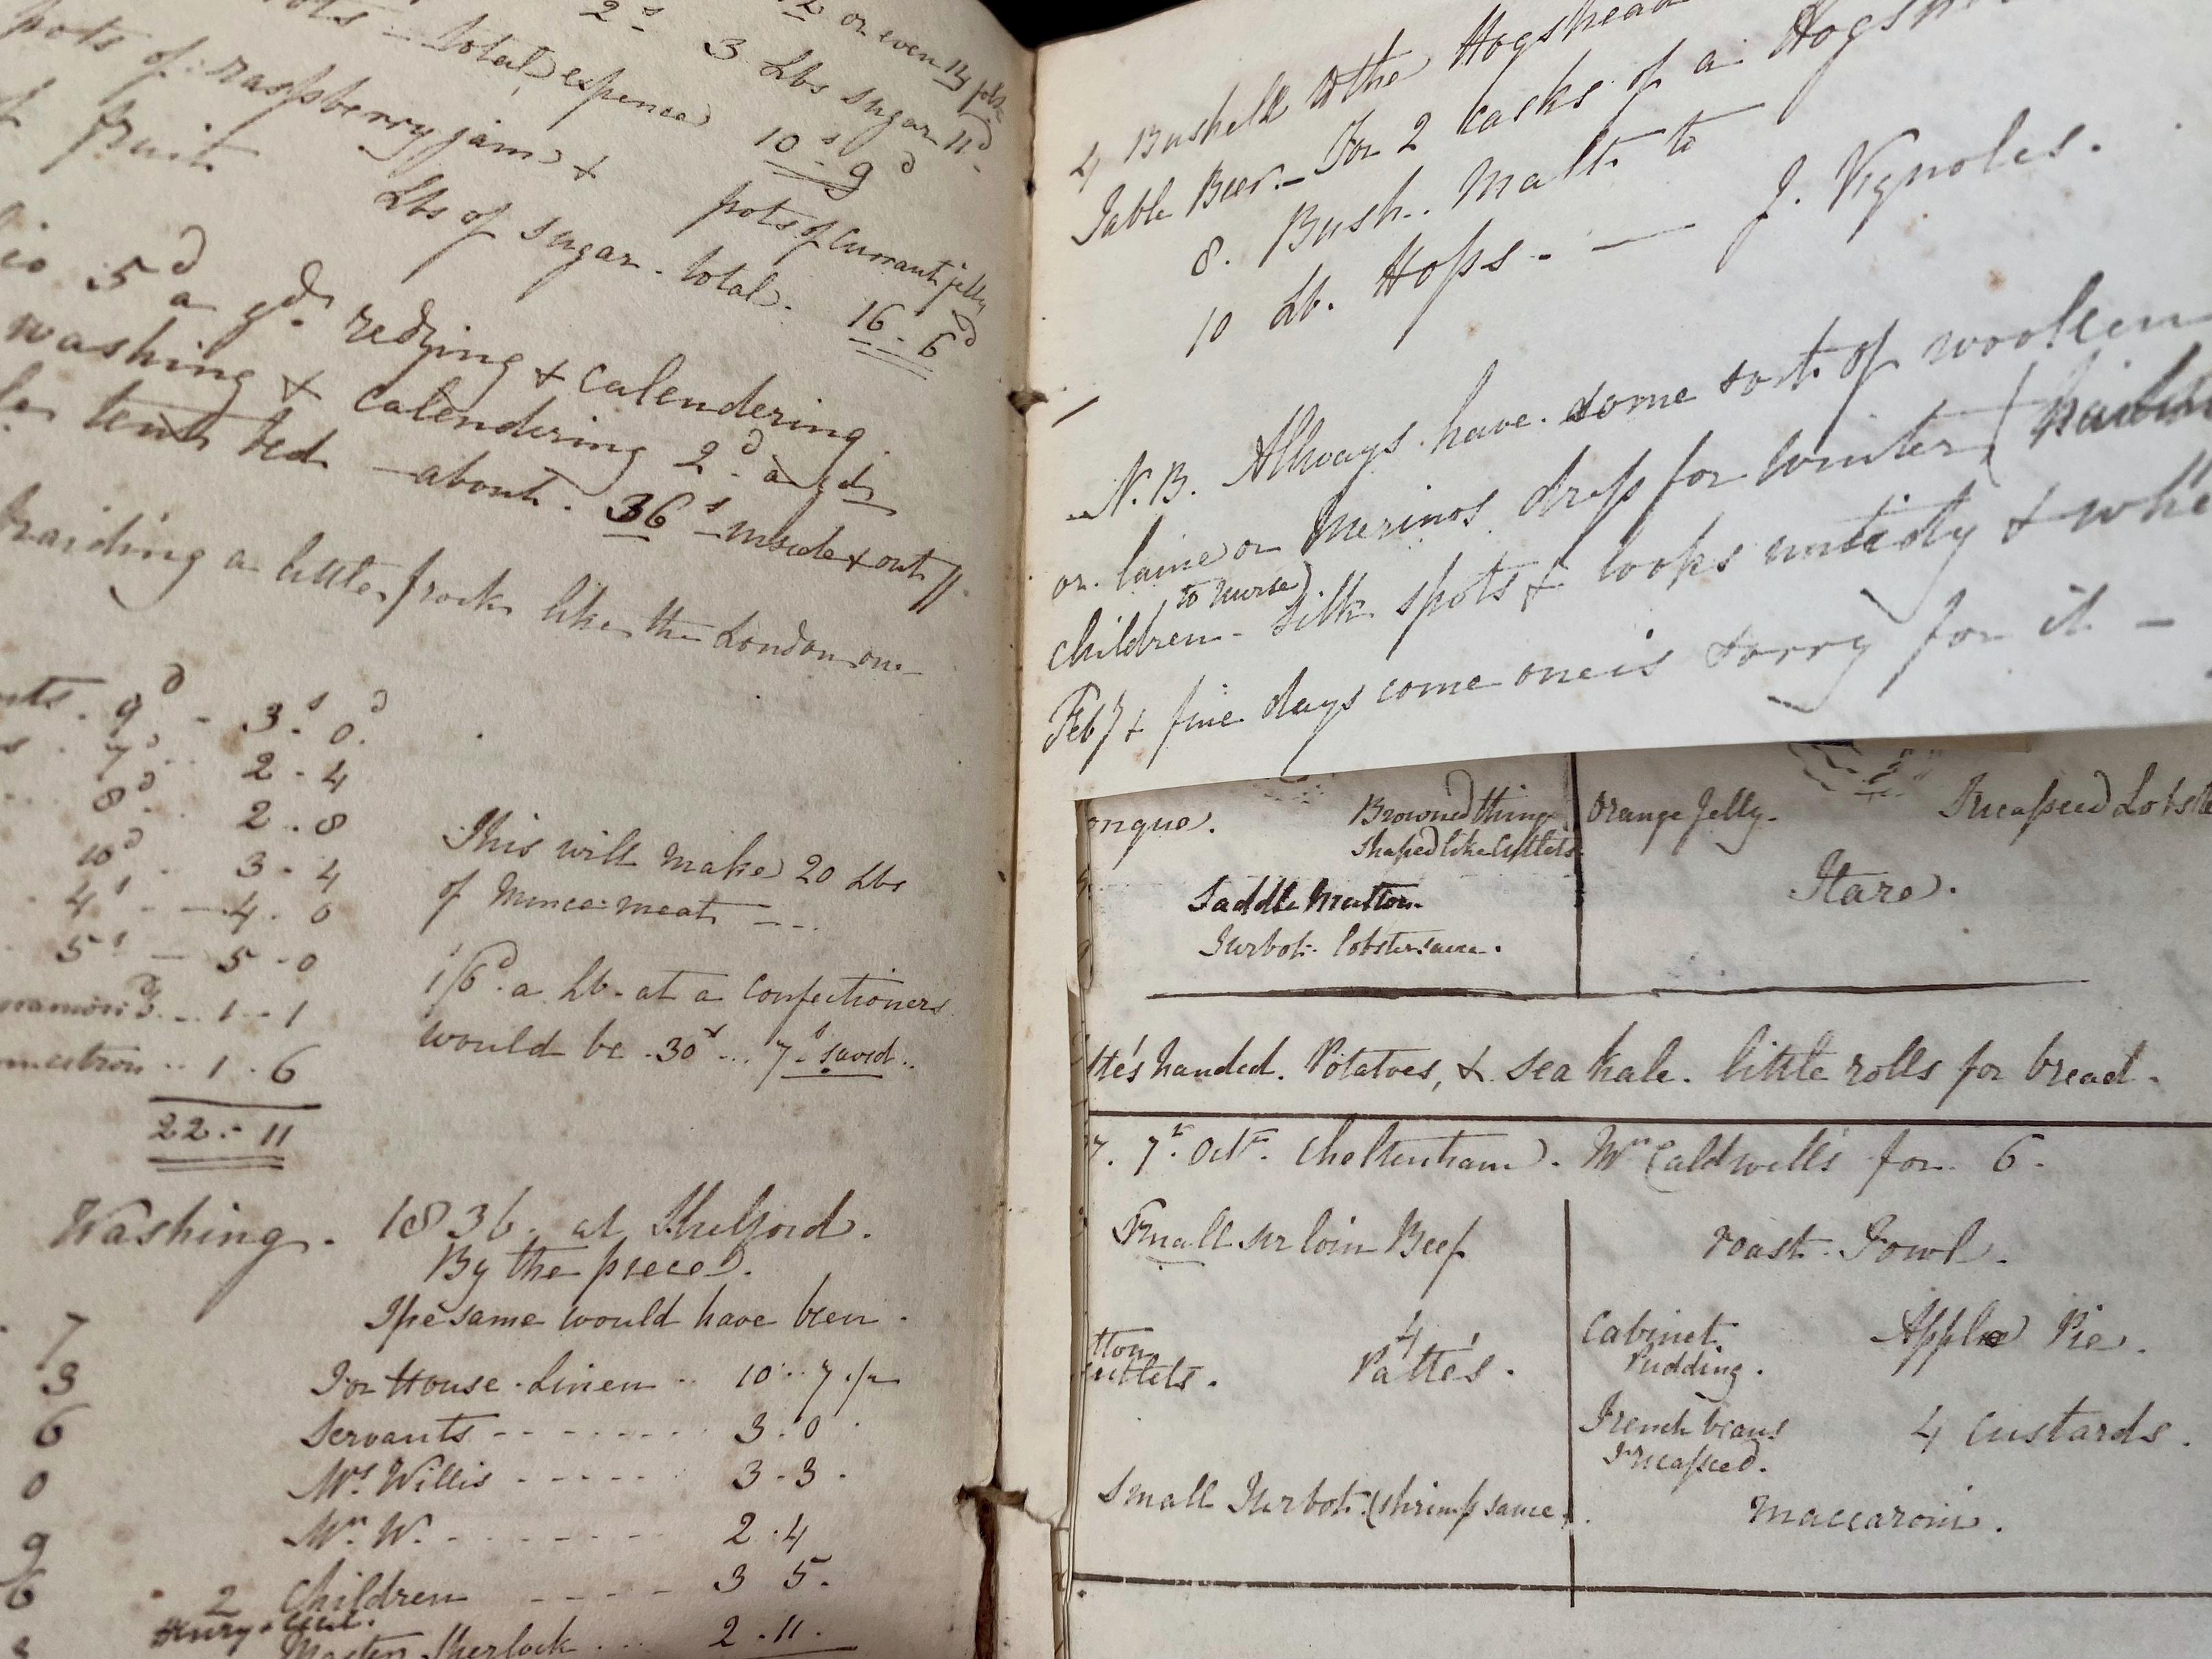 2s 12 or even 14 pots
total expence 3 Lbs sugar 11d
pots of raspberry jam & 10s 9d
of fruit pots of Currant jelly
Lbs of sugar - total. 16 - 6d
5d a yd. redying & Calendering.
washing & Calendering 2d. a yd
tent bed - about. 36s - inside & out
braiding a little frock like the London one
9d - 3.s 0.d
7d .. 2 - 4
8d .. 2 .. 8
10d . 3 - 4
4s - - 4. 0
5s - 5 - 0
1 - 1
.. 1 . 6
22. - 11
This will make 20 Lbs
of Mince meat - - -
1/6d. a Lb. at a Confectioners
would be .30s ... 7s saved..
Washing. 1836. at Shelford.
By the piece.
The same would have been.
7
3
6
0
9
6
3
For House Linen .. 10 .. 7 1/2
Servants - - - - - - - 3. 0
Mrs Willis - - - - - 3 - 3.
Mr. W. - - - - - - - 2. 4
2 Children - - - - - 3 5.
Henry & Cecil.
Master Sherlock ... 2 . 11.
4 Bushells to the Hogshead
Table Beer. - For 2 casks of a Hogshead
8. Bush. Malt to
10 Lb. Hops. - — J. Vignoles.
N.B. Allways have some sort of woollen
or laine or Merinos dress for Winter
to nurse)
children - Silk spots & looks untidy & whe
Feby & fine days come one is sorry for it -
ongue. Browned things
shaped like Cutlets.
Saddle Mutton.
Turbot. lobster sauce.
Orange Jelly. Fricasseed Lobste
Hare.
tte's handed. Potatoes, & sea kale. little rolls for bread.
7. 7th Octr. Cheltenham. Mr Caldwell's for 6.
Small sir loin Beef
tton
cutlets. 4 Patte's.
Small Turbot (shrimp sauce).
roast Fowl.
Cabinet Pudding. Apple Pie.
French beans
Fricasseed. 4 Custards.
Maccaroni.